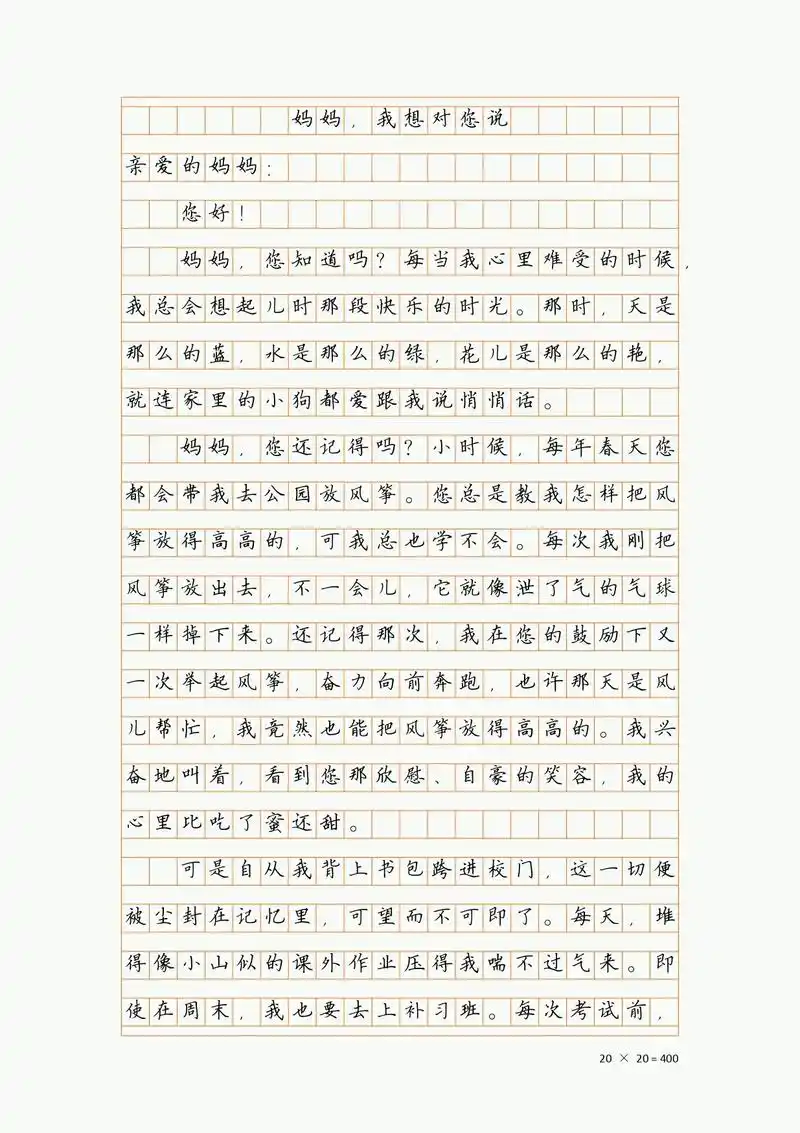 妈妈，我想对您说
亲爱的妈妈：
您好！
妈妈，您知道吗？每当我心里难受的时候，
我总会想起儿时那段快乐的时光。那时，天是
那么的蓝，水是那么的绿，花儿是那么的艳，
就连家里的小狗都爱跟我说悄悄话。
妈妈，您还记得吗？小时候，每年春天您
都会带我去公园放风筝。您总是教我怎样把风
筝放得高高的，可我总也学不会。每次我刚把
风筝放出去，不一会儿，它就像泄了气的气球
一样掉下来。还记得那次，我在您的鼓励下又
一次举起风筝，奋力向前奔跑，也许那天是风
儿帮忙，我竟然也能把风筝放得高高的。我兴
奋地叫着，看到您那欣慰、自豪的笑容，我的
心里比吃了蜜还甜。
可是自从我背上书包跨进校门，这一切便
被尘封在记忆里，可望而不可即了。每天，堆
得像小山似的课外作业压得我喘不过气来。即
使在周末，我也要去上补习班。每次考试前，
20 × 20=400